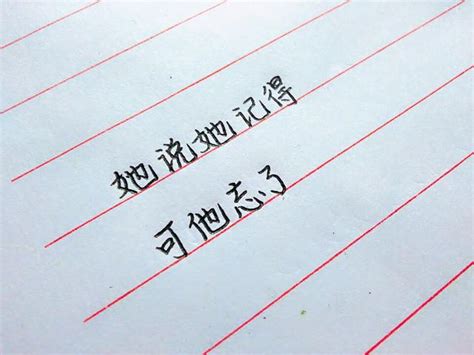 她说她记得
可他忘了